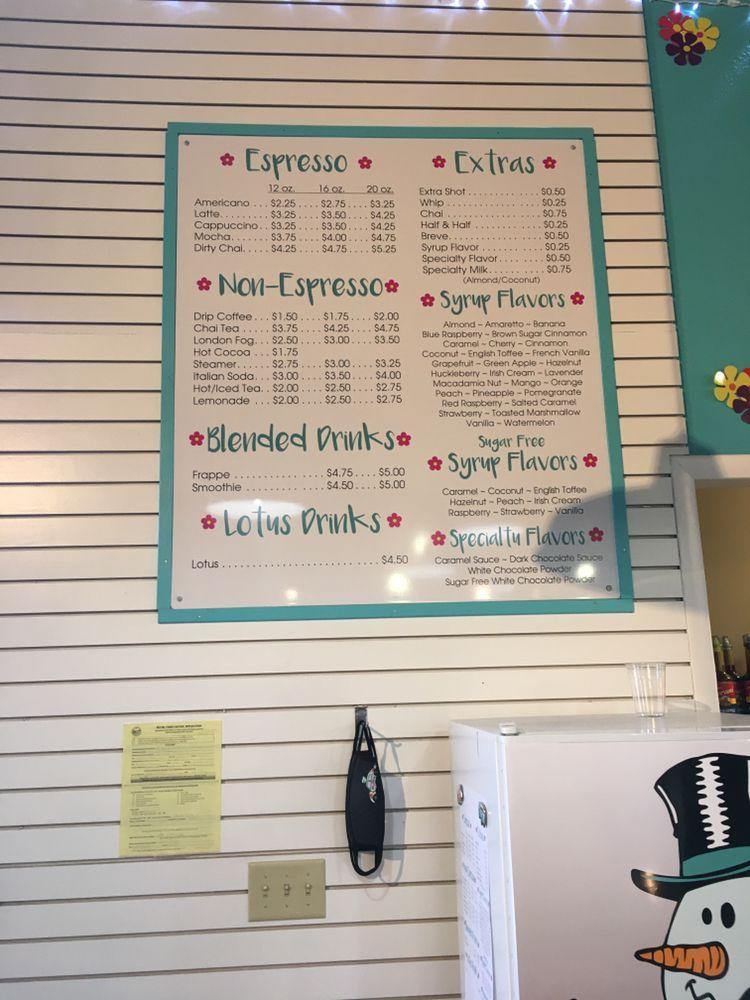 Espresso
12 oz. 16 oz. 20 oz.
Americano . . . $2.25 . . . . $2.75 . . . . $3.25
Latte. . . . . . . . $3.25 . . . . $3.50 . . . . $4.25
Cappuccino . . $3.25 . . . . $3.50 . . . . $4.25
Mocha. . . . . . $3.75 . . . . $4.00 . . . . $4.75
Dirty Chai. . . . . $4.25 . . . . $4.75 . . . . $5.25
Non-Espresso
Drip Coffee . . . $1.50 . . . . $1.75 . . . . $2.00
Chai Tea . . . . . $3.75 . . . . $4.25 . . . . $4.75
London Fog. . . $2.50 . . . . $3.00 . . . . $3.50
Hot Cocoa . . . $1.75
Steamer. . . . . . $2.75 . . . . $3.00 . . . . $3.25
Italian Soda. . . $3.00 . . . . $3.50 . . . . $4.00
Hot/Iced Tea. . $2.00 . . . . $2.50 . . . . $2.75
Lemonade . . . $2.00 . . . . $2.50 . . . . $2.75
Blended Drinks
Frappe . . . . . . . . . . . . . . . . $4.75 . . . . $5.00
Smoothie . . . . . . . . . . . . . . $4.50 . . . . $5.00
Lotus Drinks
Lotus . . . . . . . . . . . . . . . . . . . . . . . . . $4.50
Extras
Extra Shot . . . . . . . . . . . . $0.50
Whip . . . . . . . . . . . . . . . . $0.25
Chai . . . . . . . . . . . . . . . . $0.75
Half & Half . . . . . . . . . . . . $0.25
Breve. . . . . . . . . . . . . . . . $0.50
Syrup Flavor . . . . . . . . . . $0.25
Specialty Flavor. . . . . . . . $0.50
Specialty Milk. . . . . . . . . $0.75
(Almond/Coconut)
Syrup Flavors
Almond ~ Amaretto ~ Banana
Blue Raspberry ~ Brown Sugar Cinnamon
Caramel ~ Cherry ~ Cinnamon
Coconut ~ English Toffee ~ French Vanilla
Grapefruit ~ Green Apple ~ Hazelnut
Huckleberry ~ Irish Cream ~ Lavender
Macadamia Nut ~ Mango ~ Orange
Peach ~ Pineapple ~ Pomegranate
Red Raspberry ~ Salted Caramel
Strawberry ~ Toasted Marshmallow
Vanilla ~ Watermelon
Sugar Free
Syrup Flavors
Caramel ~ Coconut ~ English Toffee
Hazelnut ~ Peach ~ Irish Cream
Raspberry ~ Strawberry ~ Vanilla
Specialty Flavors
Caramel Sauce ~ Dark Chocolate Sauce
White Chocolate Powder
Sugar Free White Chocolate Powder